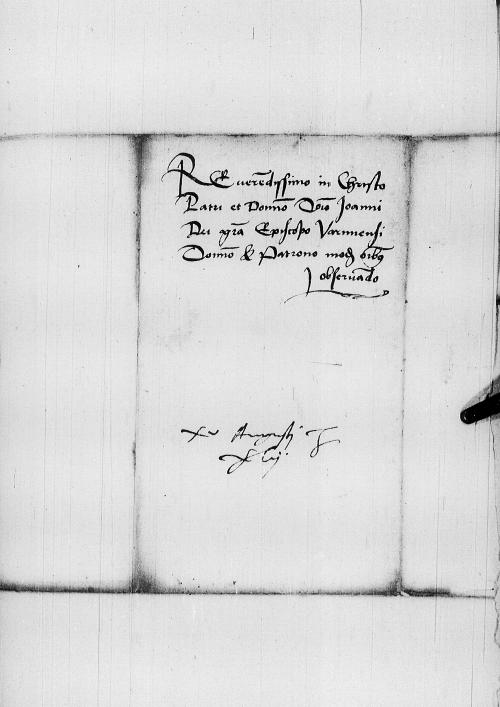 REuerēdissimo in Christo
Patri et Domīo Dño Joanni
Dei gr̃a Episcopo Varmiensi
Domīo & Patrono modis oībꝫ
obseruādo
xv Augusti